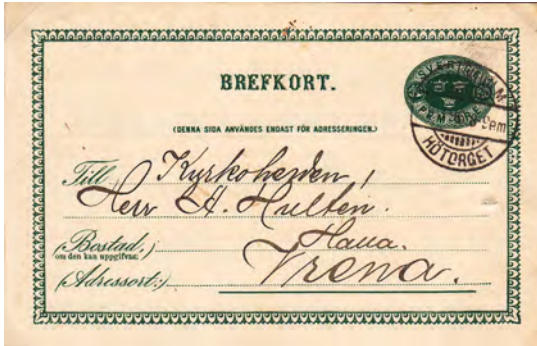 BREFKORT.
SVERIGE
FEM ÖRE
HÖTORGET
(DENNA SIDA ANVÄNDES ENDAST FÖR ADRESSERINGEN.)
Till Kyrkoherden,
Herr A. Hultén.
(Bostad,)
om den kan uppgifvas: Halla.
(Adressort:) Vrena.